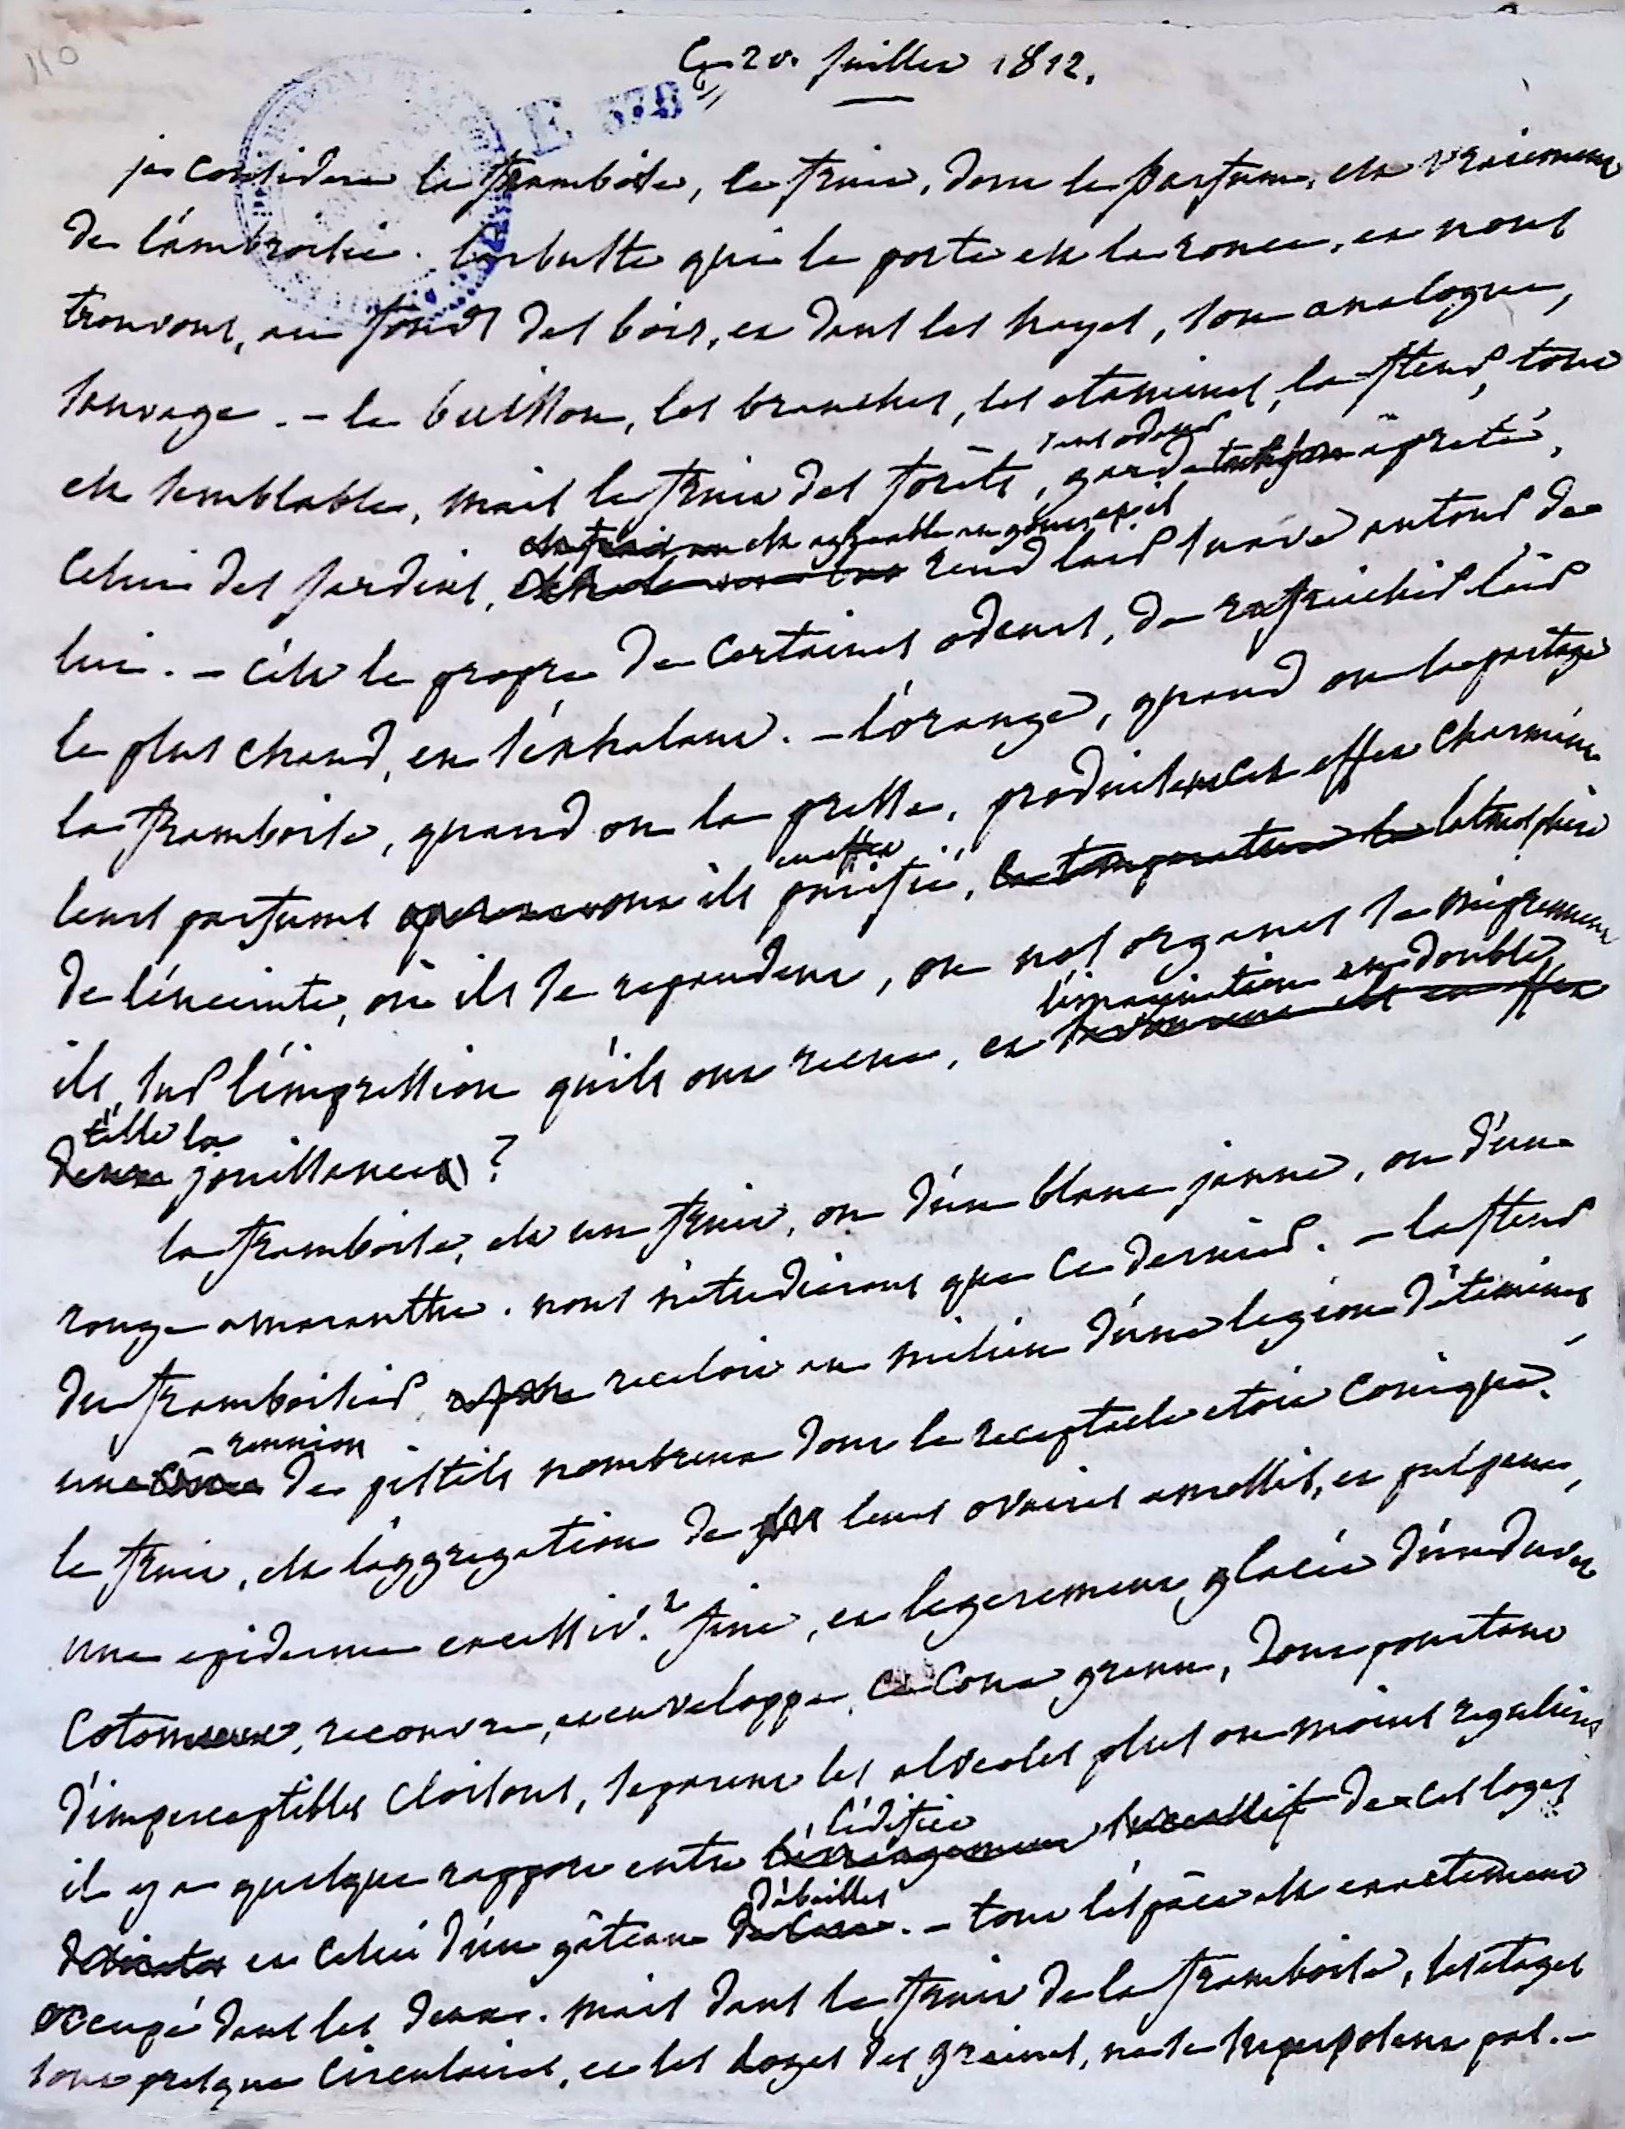 110
Ce 20. juillet 1812.
E 378
je considere la framboise, le fruit, dont le parfum, est vraiment
de l'ambroisie. l'arbuste qui le porte est la ronce, et nous
trouvons, au fond des bois, et dans les hayes, son analogue,
sauvage. - le buisson, les branches, les etamines, la fleur, tout
sans odeur
est semblable, mais le fruit des forêts, garde son âpreté,
est agreable au gout, et il
celui des jardins, rend l'air suave autour de
lui. - c'est le propre de certaines odeurs, de rafraichir l'air
le plus chaud, en s'exhalant. - l'orange, quand on la partage
la framboise, quand on la presse, produisent cet effet charmant
en effet
leurs parfums ont ils purifié, la temperature l'atmosphere
de l'enceinte, où ils se repandent, ou nos organes se meprennent
l'imagination en double
ils, sur l'impression qu'ils ont recue, et
t'elle la
deux jouissances ?
la framboise, est un fruit, ou d'un blanc jaune, ou d'un
rouge amaranthe. nous n'etudierons que ce dernier. - la fleur
du framboisier, receloit au milieu d'une legion d'etamines
reunion
une de pistils nombreux dont le receptacle etoit conique.
le fruit, est l'aggregation de leurs ovaires amollis, et pulpeux,
une epiderme excessiv.t fine, et legerement glacée d'un duvet
cotonneux, recouvre, et enveloppe, ce cone grenu, dont pourtant
d'imperceptibles cloisons, separent les alveoles plus ou moins reguliers
l'édifice
il y a quelque rapport entre l'arrangement successif de ces loges
d'abeilles
et celui d'un gâteau de cire. - tout l'espace est exactement
occupé dans les deux. mais dans le fruit de la framboise, les etages
sont presque circulaires, et les loges des graines, ne se superposent pas. -